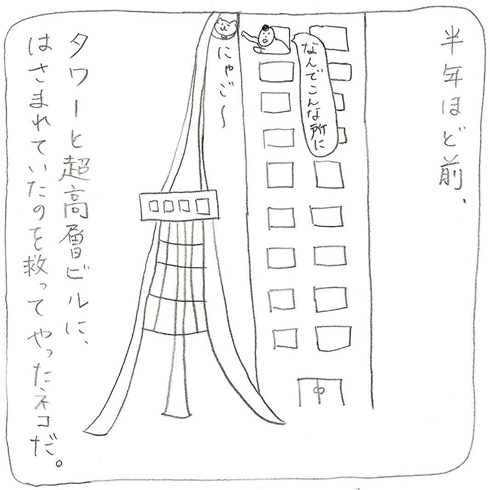 半年ほど前、
なんでこんな所に
にゃご～
タワーと超高層ビルに、
はさまれていたのを救ってやったネコだ。